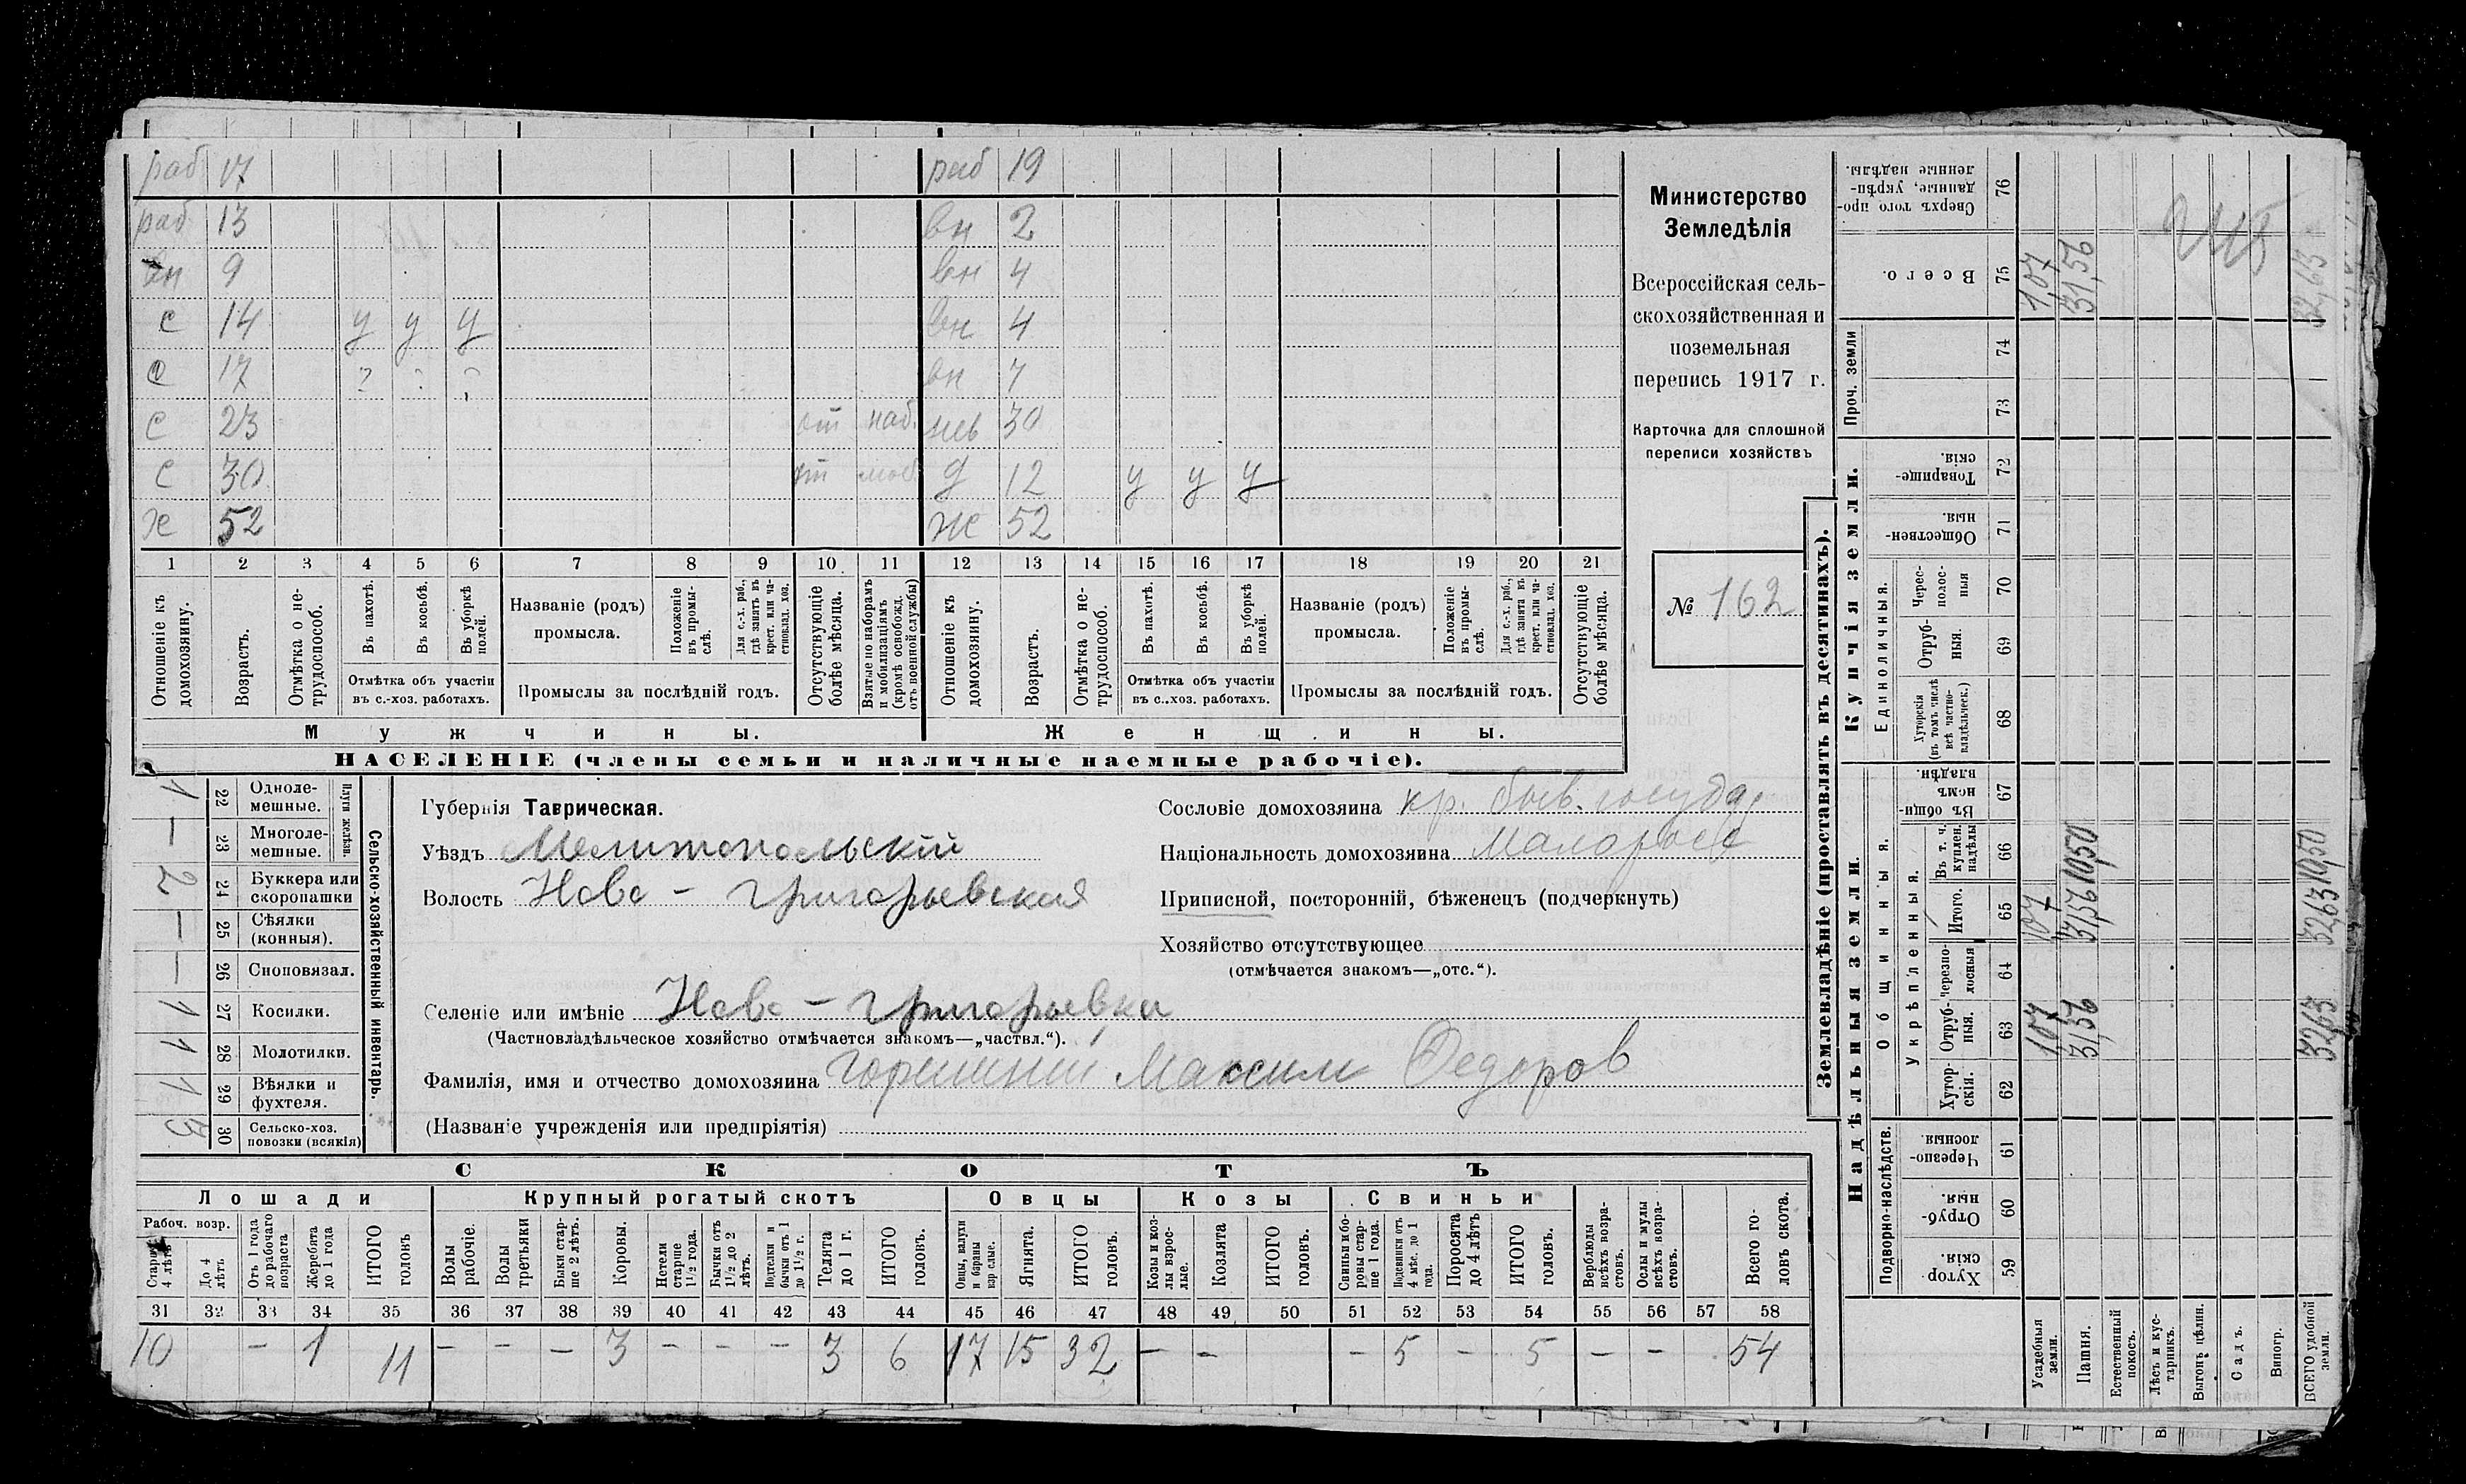 раб 17 раб 19
раб 13 вн 2
вн 9 вн 4
с 14 у у у вн 4
с 17 ? ? ? вн 7
с 23 от наб. нев 30
с 30 от моб. д 12 у у у
х 52 ж 52
1 2 3 4 5 6 7 8 9 10 11 12 13 14 15 16 17 18 19 20 21
Отношеніе къ домохозяину.
Возрастъ.
Отмѣтка о нетрудоспособ.
Въ пахотѣ.
Въ косьбѣ.
Въ уборкѣ полей.
Отмѣтка объ участіи въ с.-хоз. работахъ.
Названіе (родъ) промысла.
Положеніе въ промыслѣ.
Для с.-х. раб., гдѣ занятъ въ крест. или частновлад. хоз.
Промыслы за послѣдній годъ.
Отсутствующіе болѣе мѣсяца.
Взятые по наборамъ и мобилизаціямъ (кромѣ освобожд. отъ военной службы)
Отношеніе къ домохозяину.
Возрастъ.
Отмѣтка о нетрудоспособ.
Въ пахотѣ.
Въ косьбѣ.
Въ уборкѣ полей.
Отмѣтка объ участіи въ с.-хоз. работахъ.
Названіе (родъ) промысла.
Положеніе въ промыслѣ.
Для с.-х. раб., гдѣ занята въ крест. или частновлад. хоз.
Промыслы за послѣдній годъ.
Отсутствующіе болѣе мѣсяца.
Мужчины. Женщины.
НАСЕЛЕНІЕ (члены семьи и наличные наемные рабочіе).
Министерство
Земледѣлія
Всероссійская сель-
скохозяйственная и
поземельная
перепись 1917 г.
Карточка для сплошной
переписи хозяйствъ
№ 162
Сельско-хозяйственный инвентарь.
Плуги желѣзн.
1 22 Одноле-мешные.
— 23 Многоле-мешные.
2 24 Буккера или скоропашки
— 25 Сѣялки (конныя).
— 26 Сноповязал.
1 27 Косилки.
1 28 Молотилки.
1 29 Вѣялки и фухтеля.
3 30 Сельско-хоз. повозки (всякія)
Губернія Таврическая.
Уѣздъ Мелитопольскій
Волость Ново - Григорьевская
Селеніе или имѣніе Ново - Григорьевка
(Частновладѣльческое хозяйство отмѣчается знакомъ—„частвл.“).
Фамилія, имя и отчество домохозяина Максим Федоров
(Названіе учрежденія или предпріятія)
Сословіе домохозяина кр. быв. государ.
Національность домохозяина Малоросс
Приписной, посторонній, бѣженецъ (подчеркнуть)
Хозяйство отсутствующее
(отмѣчается знакомъ—„отс.“).
СКОТЪ
Лошади Крупный рогатый скотъ Овцы Козы Свиньи
Рабоч. возр.
Старше 4 лѣтъ
До 4 лѣтъ
Отъ 1 года до рабочаго возраста
Жеребята до 1 года
ИТОГО головъ
Волы рабочіе.
Волы третьяки
Быки старше 2 лѣтъ.
Коровы.
Нетели старше 1½ года.
Бычки отъ 1½ до 2 лѣтъ.
Подтелки и бычки отъ 1 до 1½ г.
Телята до 1 г.
ИТОГО головъ.
Овцы, валухи и бараны взрослые.
Ягнята.
ИТОГО головъ.
Козы и козлы взрослые.
Козлята
ИТОГО головъ.
Свиньи и боровы старше 1 года.
Подсвинки отъ 4 мѣс. до 1 года.
Поросята до 4 лѣтъ
ИТОГО головъ.
Верблюды всѣхъ возрастовъ.
Ослы и мулы всѣхъ возрастовъ.
Всего головъ скота.
31 32 33 34 35 36 37 38 39 40 41 42 43 44 45 46 47 48 49 50 51 52 53 54 55 56 57 58
10 — 1 11 — — — 3 — — — 3 6 17 15 32 — — — 5 — 5 — — 54
Землевладѣніе (проставлять въ десятинахъ).
Сверхъ того проданные, укрѣпленные надѣлы. 76
Всего. 75 1,07 31,56 32,63
Проч. земли 74 73
Купчія земли.
Товарищескія. 72
Общественныя. 71
Единоличныя.
Чересполосныя 70
Отрубныя. 69
Хуторскія (въ томъ числѣ всѣ частновладѣльческ.) 68
Надѣльныя земли.
Общинныя.
Въ общинномъ владѣн. 67
Укрѣпленныя.
Въ т. ч. куплен. надѣлы 66 10,50 10,50
Итого. 65 1,07 31,56 32,63
Черезполосныя 64
Отрубныя. 63 1,07 31,56 32,63
Хуторскія. 62
Подворно-наслѣдств.
Черезполосныя. 61
Отрубныя. 60
Хуторскія. 59
Усадебныя земли.
Пашня.
Естественный покосъ.
Лѣсъ и кустарникъ.
Выгонъ цѣлин.
Садъ.
Виногр.
ВСЕГО удобной земли.